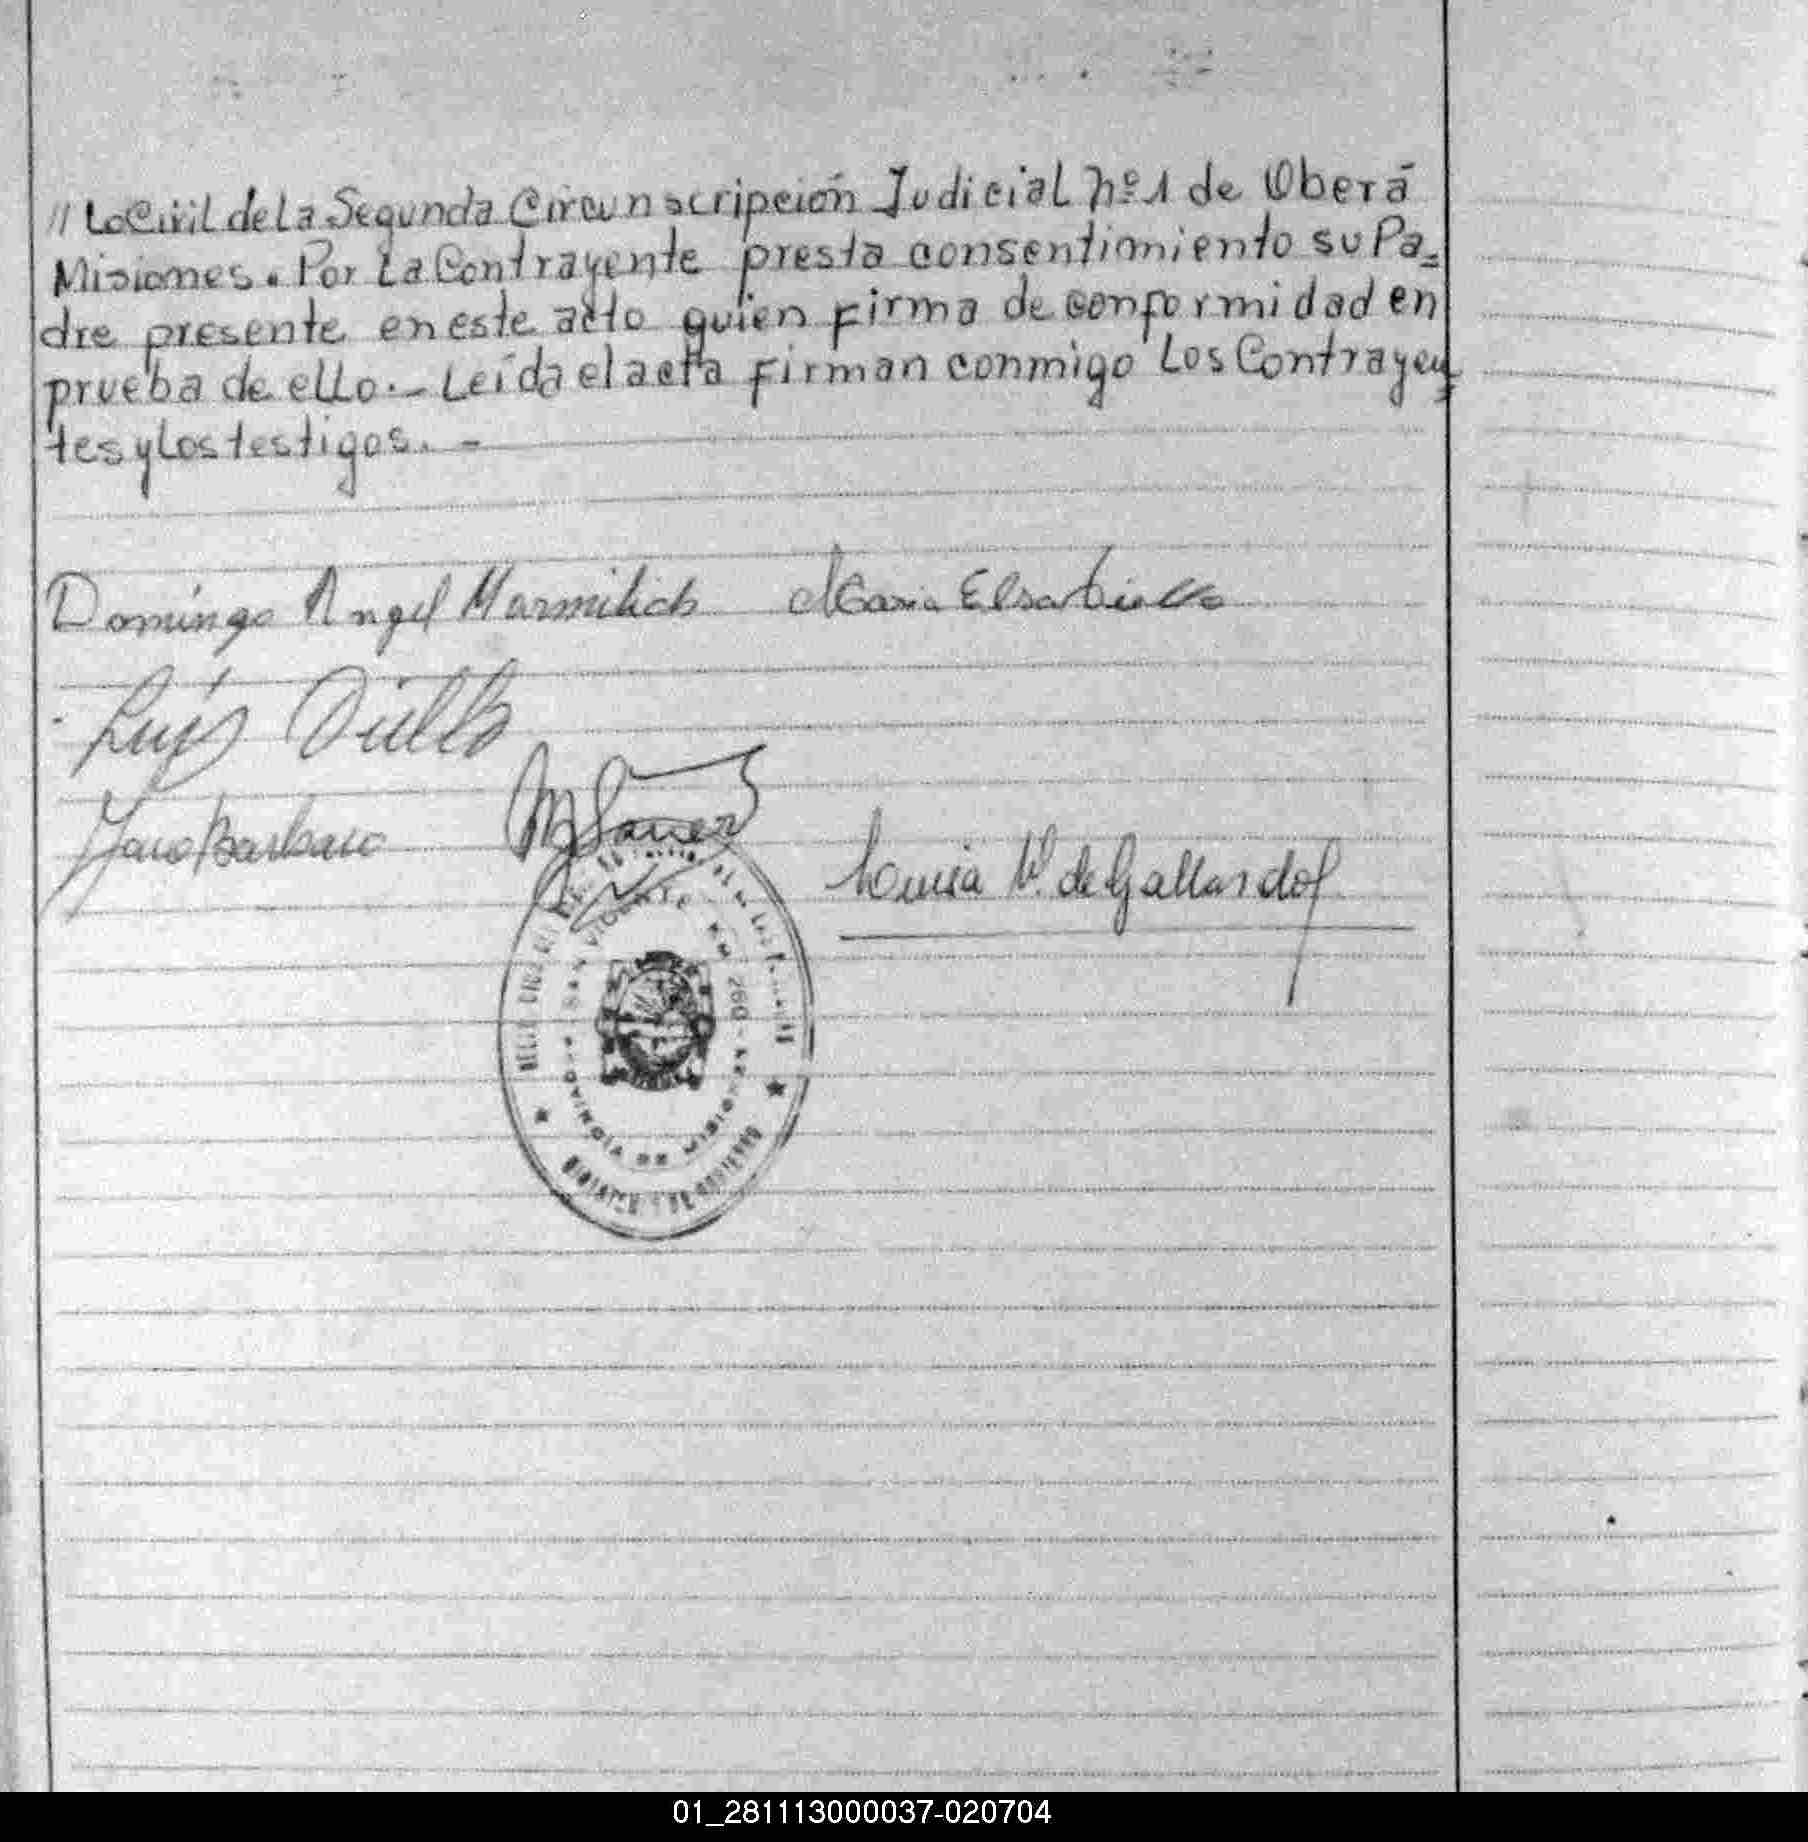 // Lo Civil de La Segunda Circunscripción Judicial nº 1 de Oberá
Misiones. Por La Contrayente presta consentimiento su Pa=
dre presente en este acto quien firma de conformidad en
prueba de ello.- Leída el acta firman conmigo Los Contrayen
tes y Los testigos. -
Domingo Angel Marmilich Maria Elsa
Luis
M Sauer
Barbaro
V. de Gallardo
SAN VICENTE KM. 260
PROVINCIA DE MISIONES
01_281113000037-020704